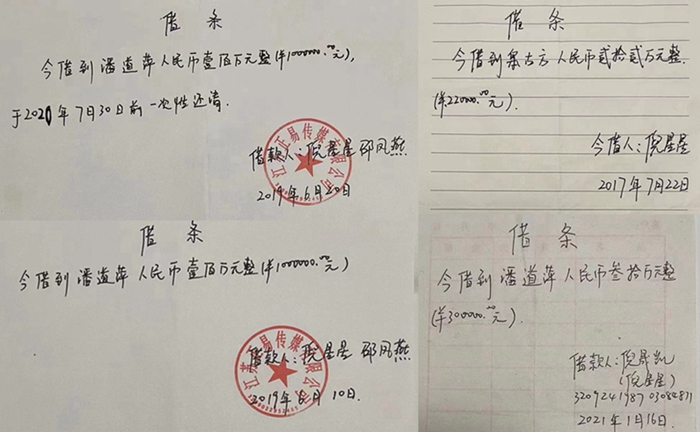 借条
今借到潘道萍人民币壹佰万元整(¥1000000.00元),
于2021年7月30日前一次性还清.
借款人:倪星星 邵凤燕
2019年6月20日
正易传媒有限公司
借条
今借到
人民币贰拾贰万元整.
(¥22000.00元).
今借人:倪星星
2017年7月22日
借条
今借到潘道萍人民币壹佰万元整(¥1000000.00元)
借款人:倪星星 邵凤燕
2019年6月10日.
正易传媒有限公司
借条
今借到潘道萍人民币叁拾万元整
(¥300000.00元).
借款人:倪晟凯
(倪星星)
2021年1月16日.